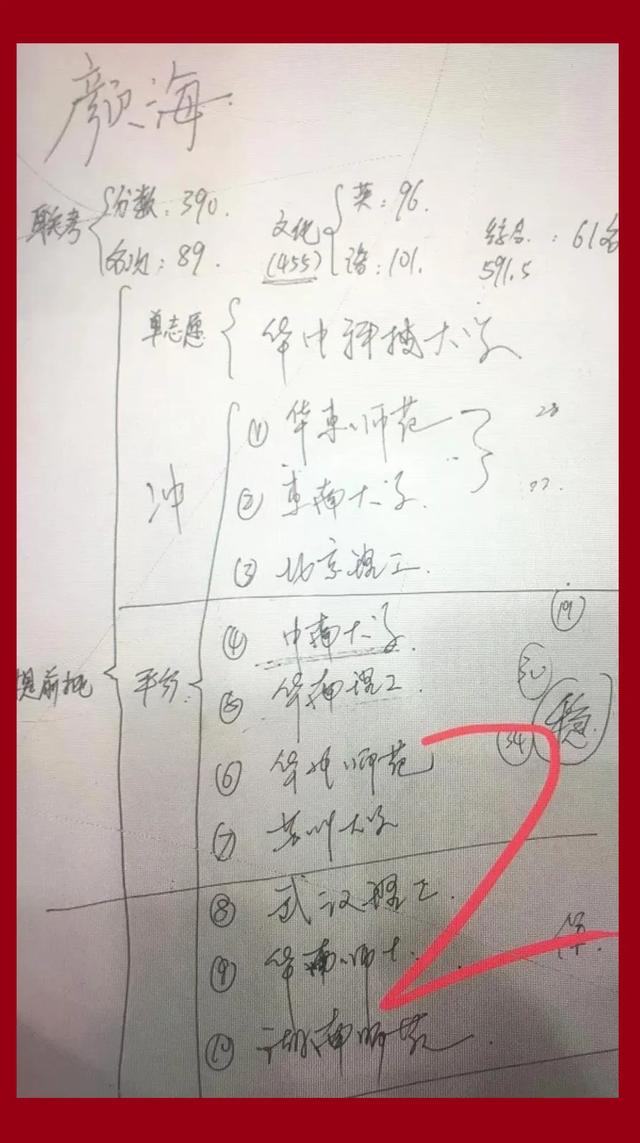 颜海
联考 分数:390. 文化(455) 英:96. 综合:61名
名次:89. 语:101. 591.5
单志愿 华中科技大学
冲 ① 华东师范
② 东南大学.
③ 北京理工.
④ 中南大学. 19
提前批 平行: ⑤ 华南理工.
⑥ 华中师范 34 稳
⑦ 苏州大学
⑧ 武汉理工.
⑨ 华南师大. 保.
⑩ 湖南师范.
2